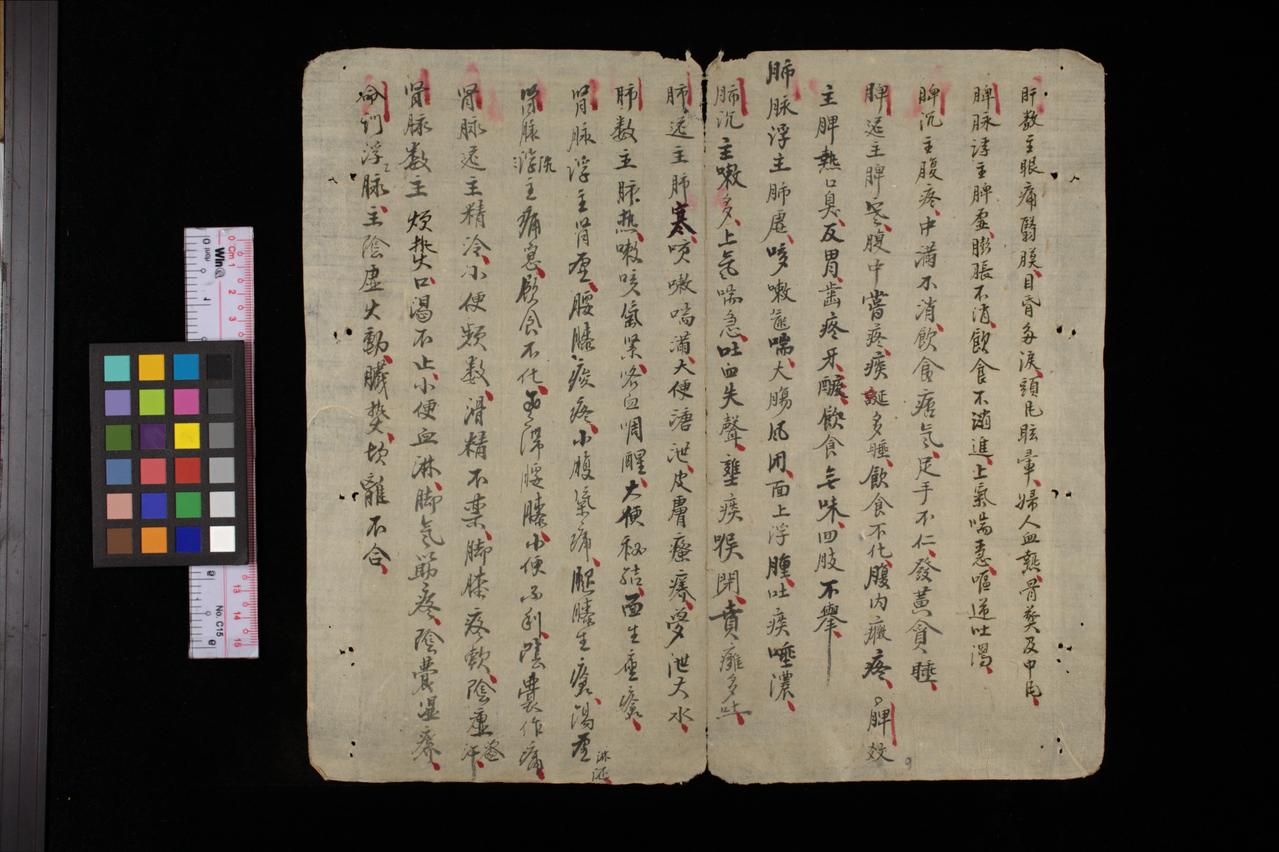 肝数主眼痛翳膜目昏多淚頭風眩暈婦人血熱骨蒸及中風
脾脉浮主脾虛膨脹不消飲食不消進上氣喘急嘔逆吐瀉
脾沉主腹疼中滿不消飲食痞气足手不仁發黃貪睡
脾遲主脾寒腹中嘗疼痰誕多睡飲食不化腹內癥疼。脾数
主脾熱口臭反胃齒疼牙飲食無味四肢不舉
肺脉浮主肺咳嗽喘大腸風閉面上浮腫吐痰唾濃
肺沉主嗽多上气喘急吐血失聲壅痰喉閉賁癰多吐
肺遲主肺寒咳嗽喘滿大便溏泄皮膚瘙癢夢泄大水
肺数主脉热嗽咳氣紧咯血大便秘结面生瘡
腎脉浮主腎虛腰膝痠疼小腹氣痛腿膝生瘡湯
腎脉浮沉主痛急飲食不化滯腰膝小便不利陰囊作痛
腎脉遲主精冷小便频数滑精不禁脚膝疼軟陰虛盗汗
腎脉数主烦热口渴不止小便血淋脚气筋疼陰囊湿痒
命門浮脉主陰虛火動臟热不合
Win
Cm 1
2
3
13
14
15
No. C15